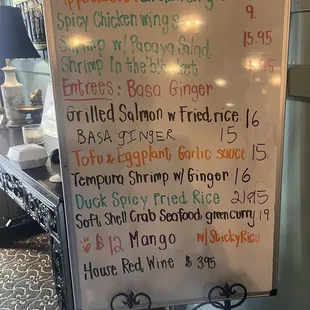 Spicy Chicken wings 9.
Shrimp w/ Papaya Salad 15.95
Shrimp in the blanket 9.95
Entrees: Basa Ginger
Grilled Salmon w Fried rice 16
BASA GINGER 15
Tofu & Eggplant Garlic sauce 15
Tempura Shrimp w/ Ginger 16
Duck Spicy Fried Rice 21.95
Soft Shell Crab Seafood green curry 19
$12 Mango w/ Sticky Rice
House Red Wine $ 3.95